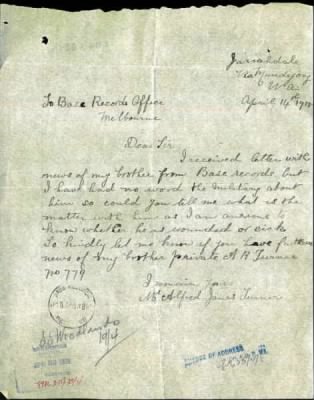 Jarrahdale
Via Mundijong
W.A.
April 14th
To Base Records Office
Melbourne
Dear Sir
I received letter with
news of my brother from Base records but
I have had no word the military about
him so could you tell me what is the
matter with him as I am anxious to
know whether he is wounded or sick
So kindly let me know if you have further
news of my brother private A R Turner
no 779
I remain yours
Mr Alfred James Turner
Woodlands
19/4
CHANGE OF ADDRESS